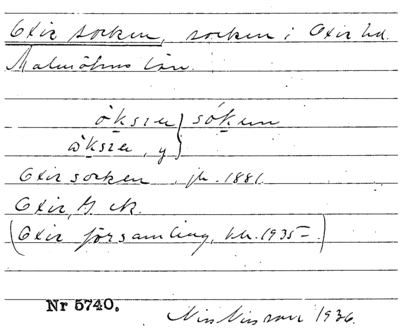 Oxie socken, socken i Oxie hd.
Malmöhus län.
òksıea } sóken
àksıea, y
Oxie socken, jb. 1881.
Oxie, G. K.
(Oxie församling, kb. 1935-)
Nr 5740.
Nils Nilsson 1936.